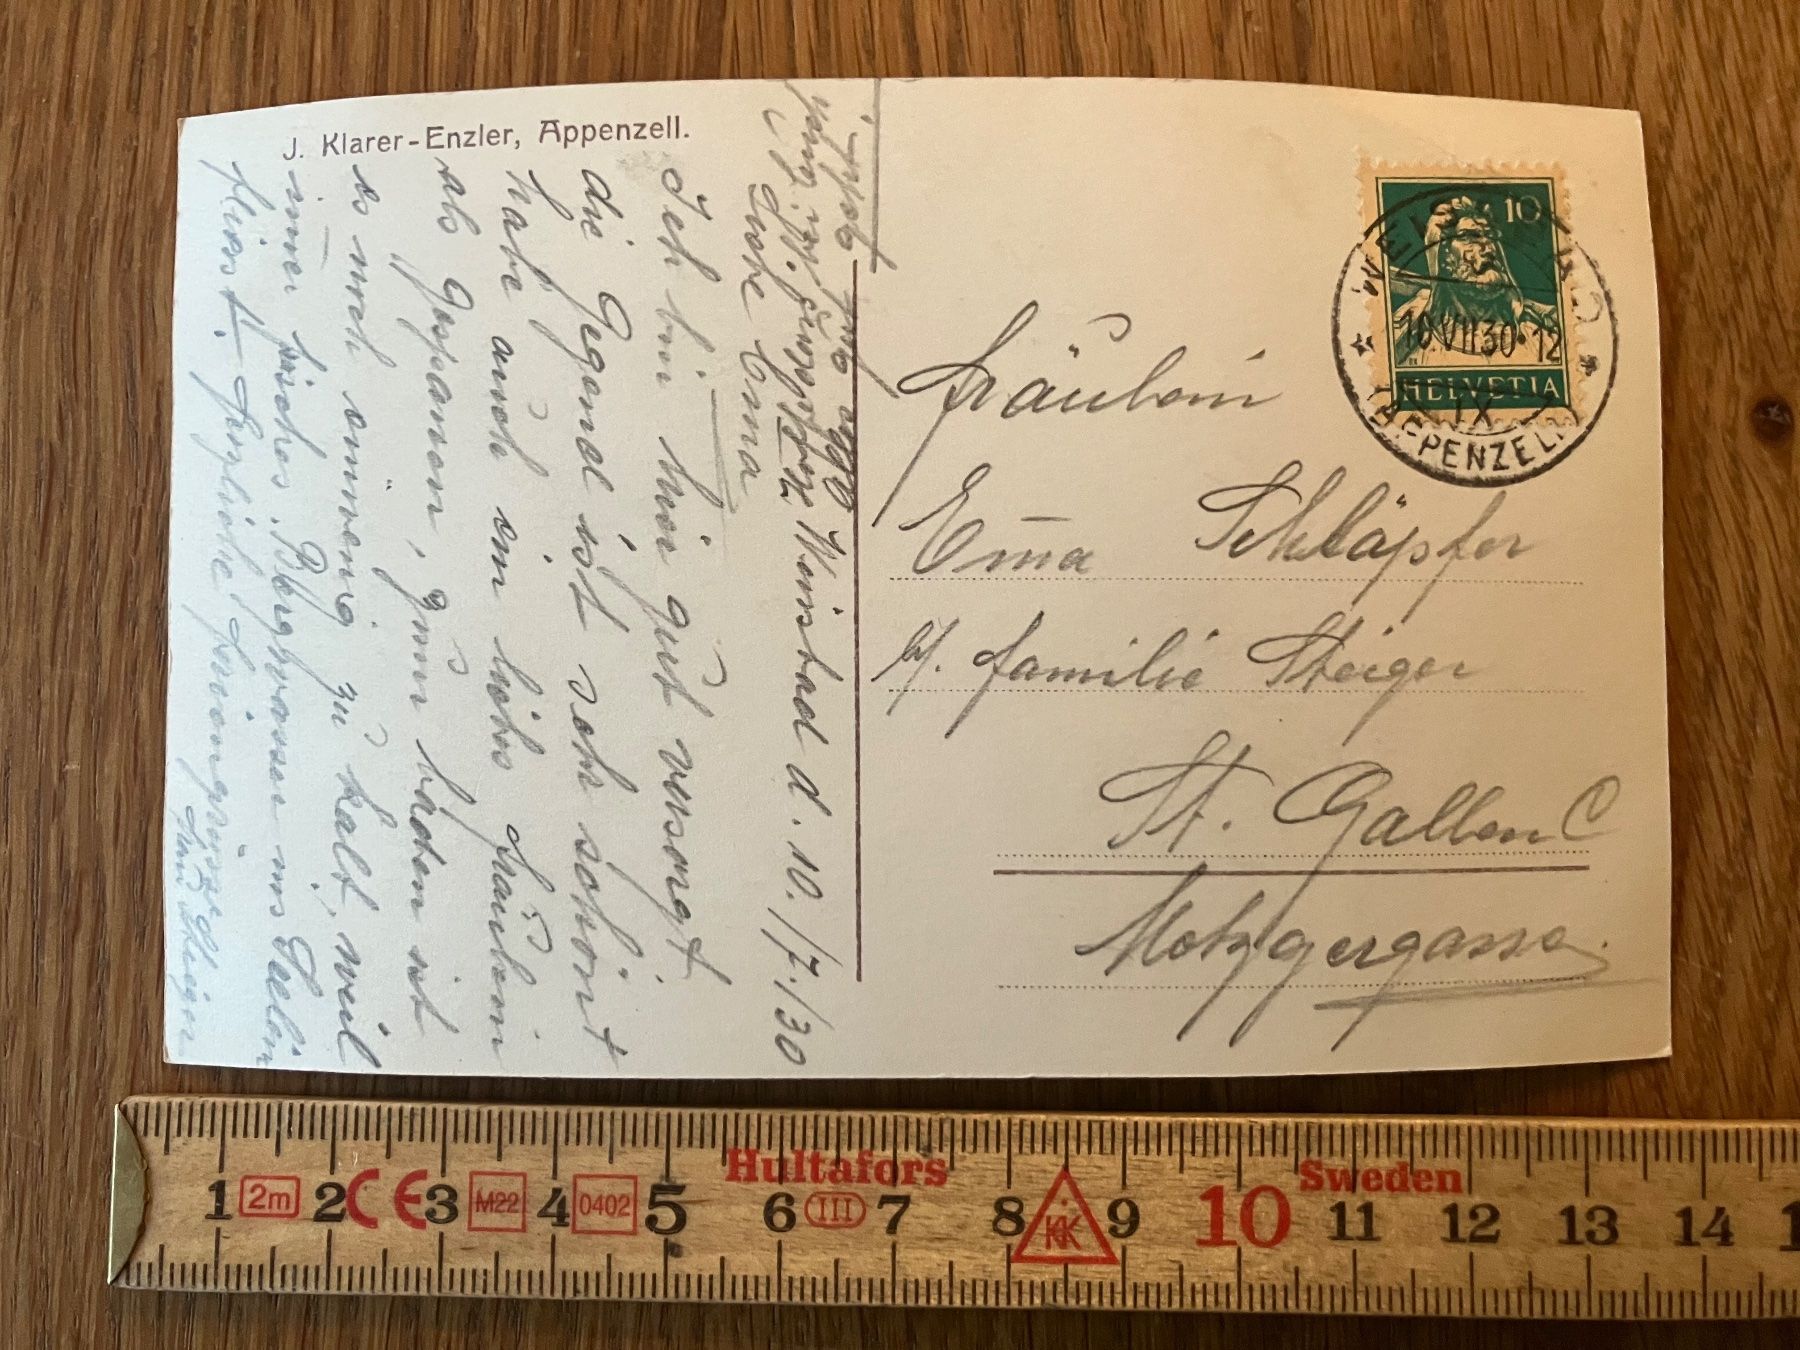 J. Klarer-Enzler, Appenzell.
Weissbad d. 10./7./30
Liebe Emma
Ich bin hier gut versorgt.
die Gegend ist sehr schön
habe auch ein liebes Fräulein
als Gespannin, zum baden ist
es noch ein wenig zu kalt, weil
immer frisches Bergwasser ins
herzliche
Fräulein
Emma Schläpfer
b/. Familie Steiger
St. Gallen C
Metzgergasse.
10
10.VII.30·12
HELVETIA
IX
(APPENZELL)
1 2m 2 CE 3 M22 4 0402 5 Hultafors 6 III 7 8 9 10 Sweden 11 12 13 14